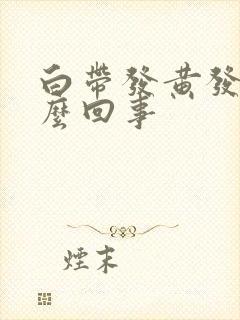 白帶發黃發
麼回事
煙末